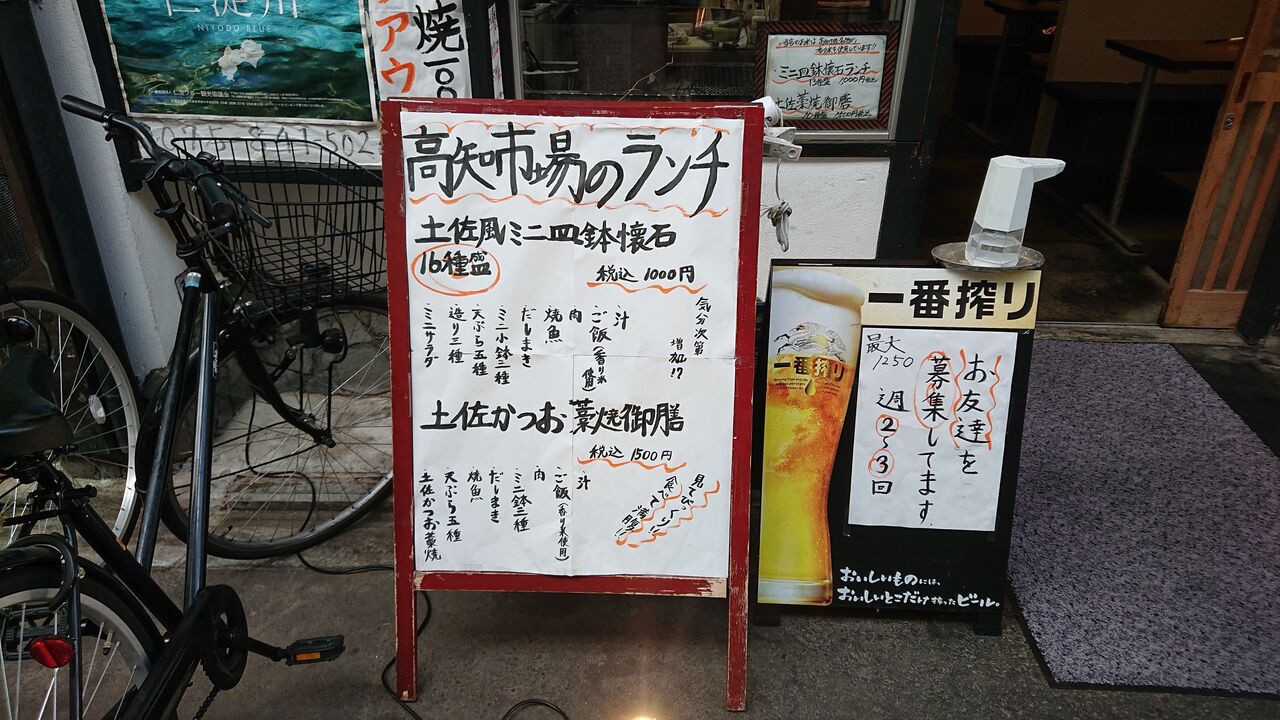 仁淀川
NIYODO BLUE
アウ
焼一〇
ミニ皿鉢懐石ランチ
1000円
土佐藁焼御膳
高知市場のランチ
土佐風ミニ皿鉢懐石
16種盛
税込 1000円
気分次第
増加!?
汁
ご飯(香り米
肉
焼魚
だしまき
ミニ小鉢三種
天ぷら五種
造り三種
ミニサラダ
土佐かつお藁焼御膳
税込 1500円
見てびっくり!!
食べて満腹!!
汁
ご飯(香り米使用)
肉
ミニ鉢三種
だしまき
焼魚
天ぷら五種
土佐かつお藁焼
一番搾り
一番搾り
お友達を
募集してます
週2〜3回
最大
1250
おいしいものには、
おいしいとこだけ搾ったビール。